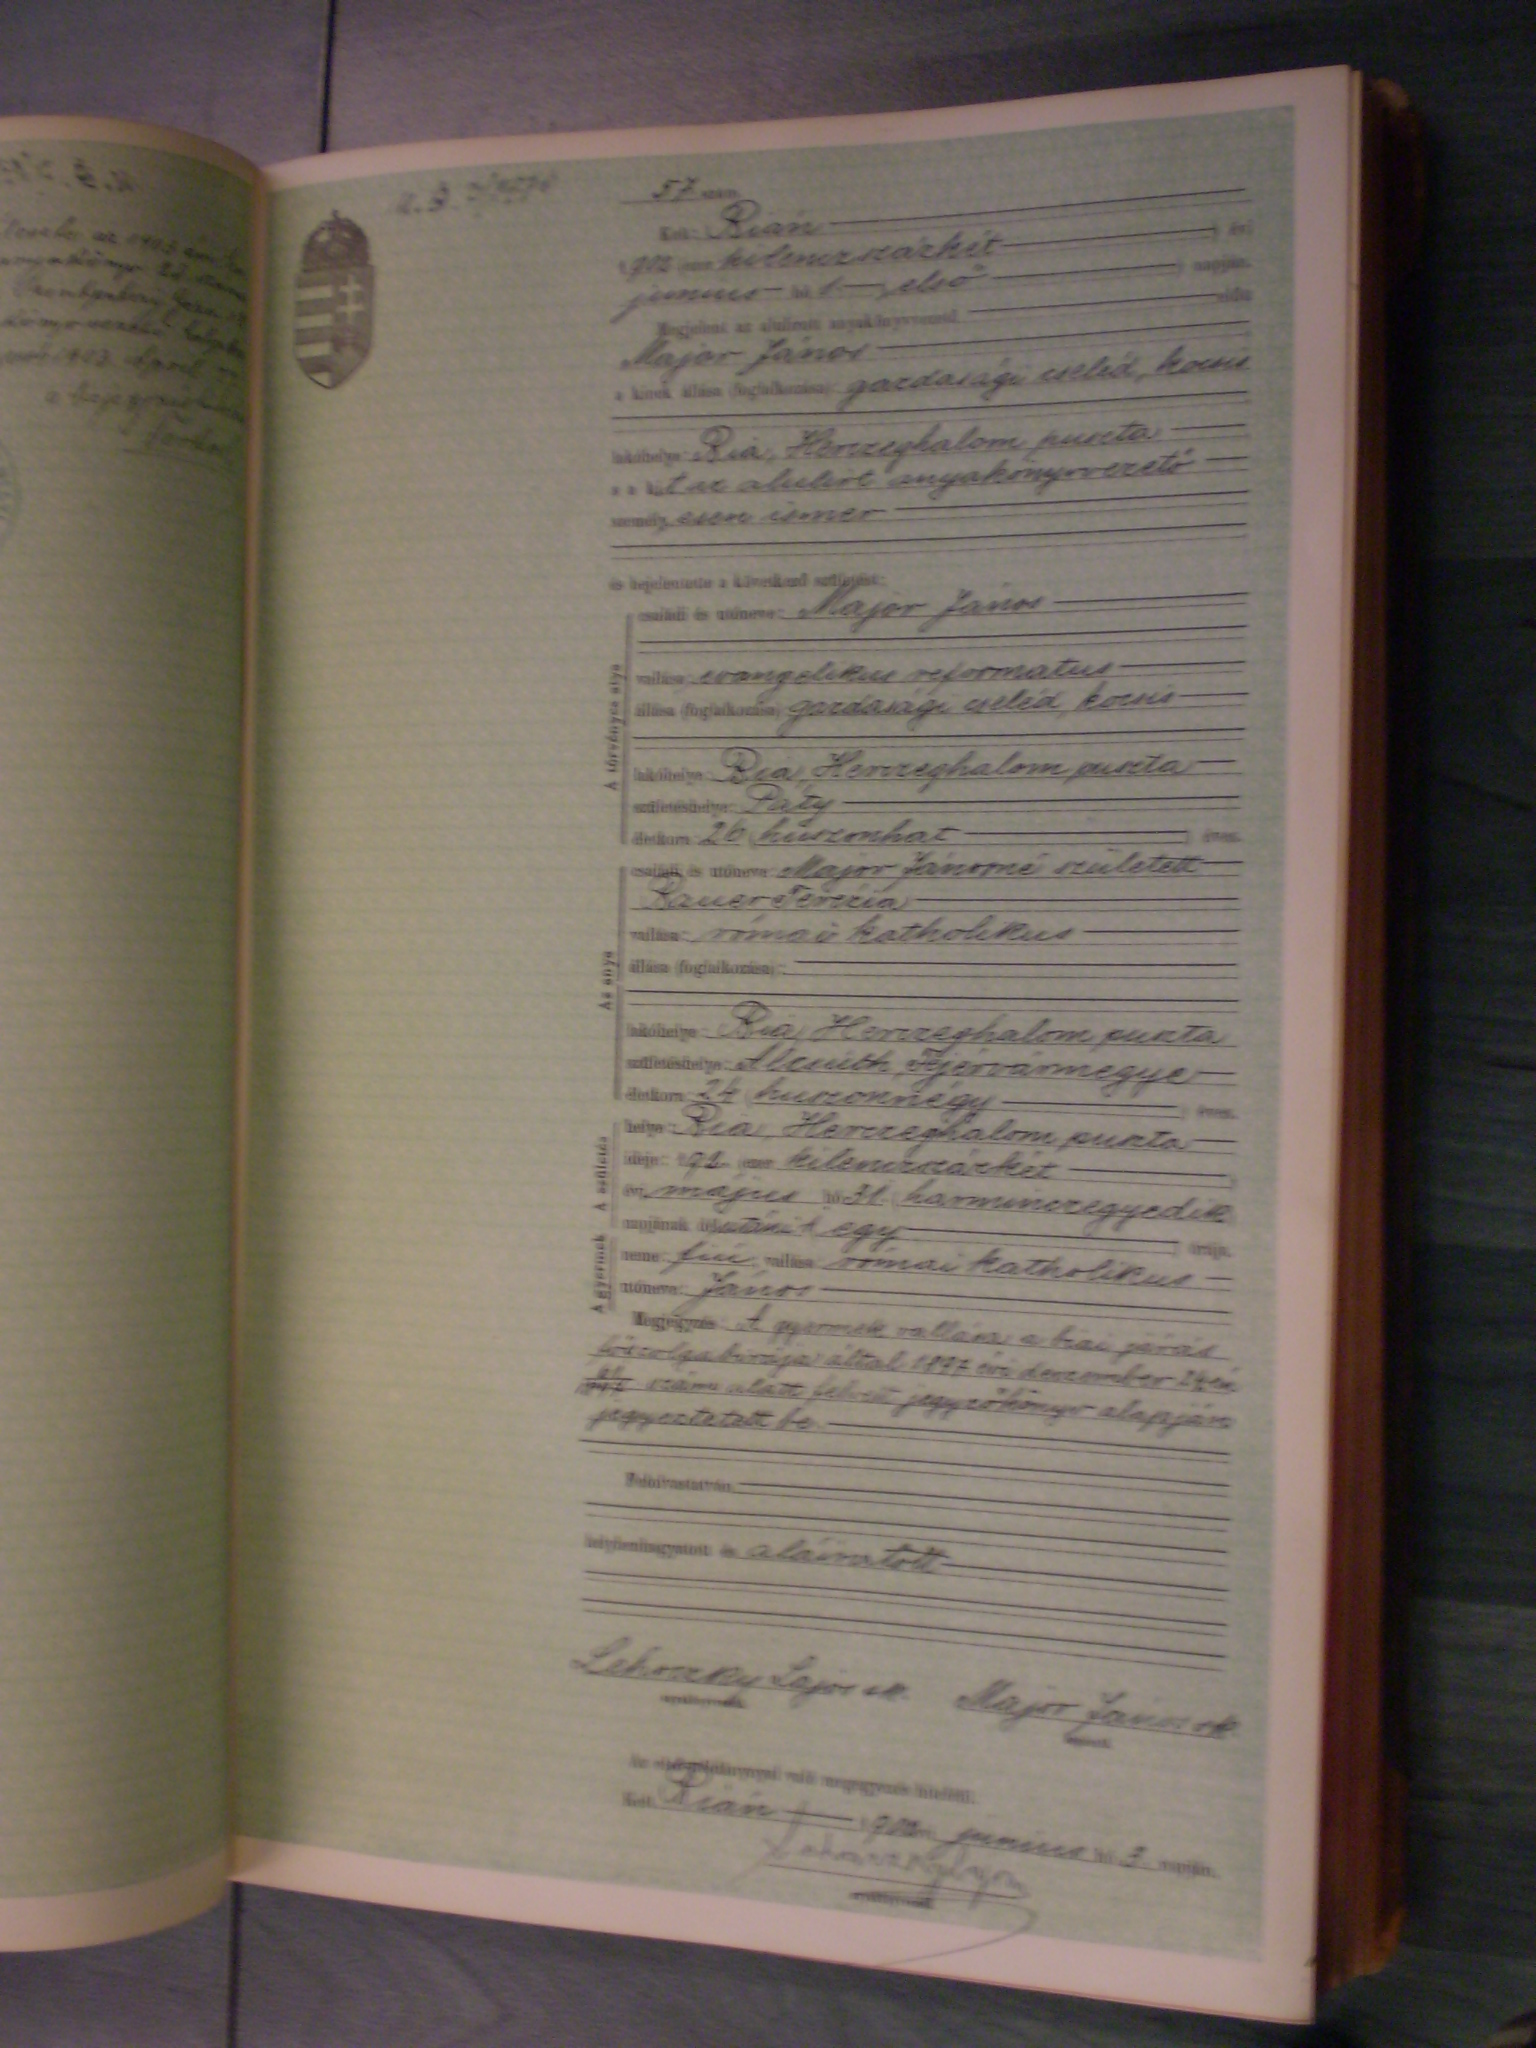 57 szám.
Kelt: Bián
1902 (ezer kilenczszázkét ) évi
junius hó 1. ( első ) napján.
Megjelent az alulirott anyakönyvvezető előtt
Major János
a kinek állása (foglalkozása): gazdasági cseléd, kocsis
lakóhelye: Bia, Herczeghalom puszta
s a kit az alulirt anyakönyvvezető
személyesen ismer
és bejelentette a következő születést:
A törvényes atya
családi és utóneve: Major János
vallása: evangelikus reformatus
állása (foglalkozása): gazdasági cseléd, kocsis
lakóhelye: Bia, Herczeghalom puszta
születéshelye: Páty
életkora: 26 ( húszonhat ) éves.
Az anya
családi és utóneve: Major Jánosné született
Bauer Terézia
vallása: római katholikus
állása (foglalkozása):
lakóhelye: Bia, Herczeghalom puszta
születéshelye: Alcsúth, Fejérvármegye
életkora: 24 ( huszonnégy ) éves.
A születés
helye: Bia, Herczeghalom puszta
ideje: 1902 (ezer kilenczszázkét )
évi május hó 31. ( harminczegyedik )
napjának délutáni 1 egy ) órája.
A gyermek
neme: fiú, vallása: római katholikus
utóneve: János
Megjegyzés: A gyermek vallása a biai járás
főszolgabirája által 1897 évi deczember 24-én
szám alatt felvett jegyzőkönyv alapján
jegyeztetett be.
Felolvastatván,
helybenhagyatott és aláiratott
Lehoczky Lajos sk. Major János sk.
anyakönyvvezető.
Az elsőpéldánynyal való megegyezés hiteléül.
Kelt Bián 1902 junius hó 3. napján.
Lehoczky Lajos
anyakönyvvezető.